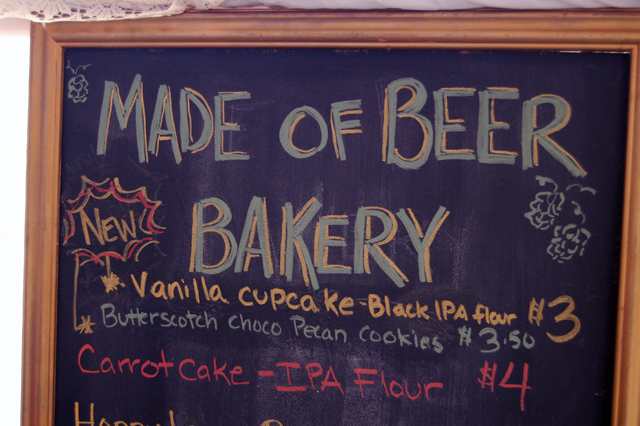 MADE OF BEER
BAKERY
NEW
* Vanilla cupcake - Black IPA flour $3
* Butterscotch choco Pecan cookies $3.50
Carrot cake - IPA Flour $4